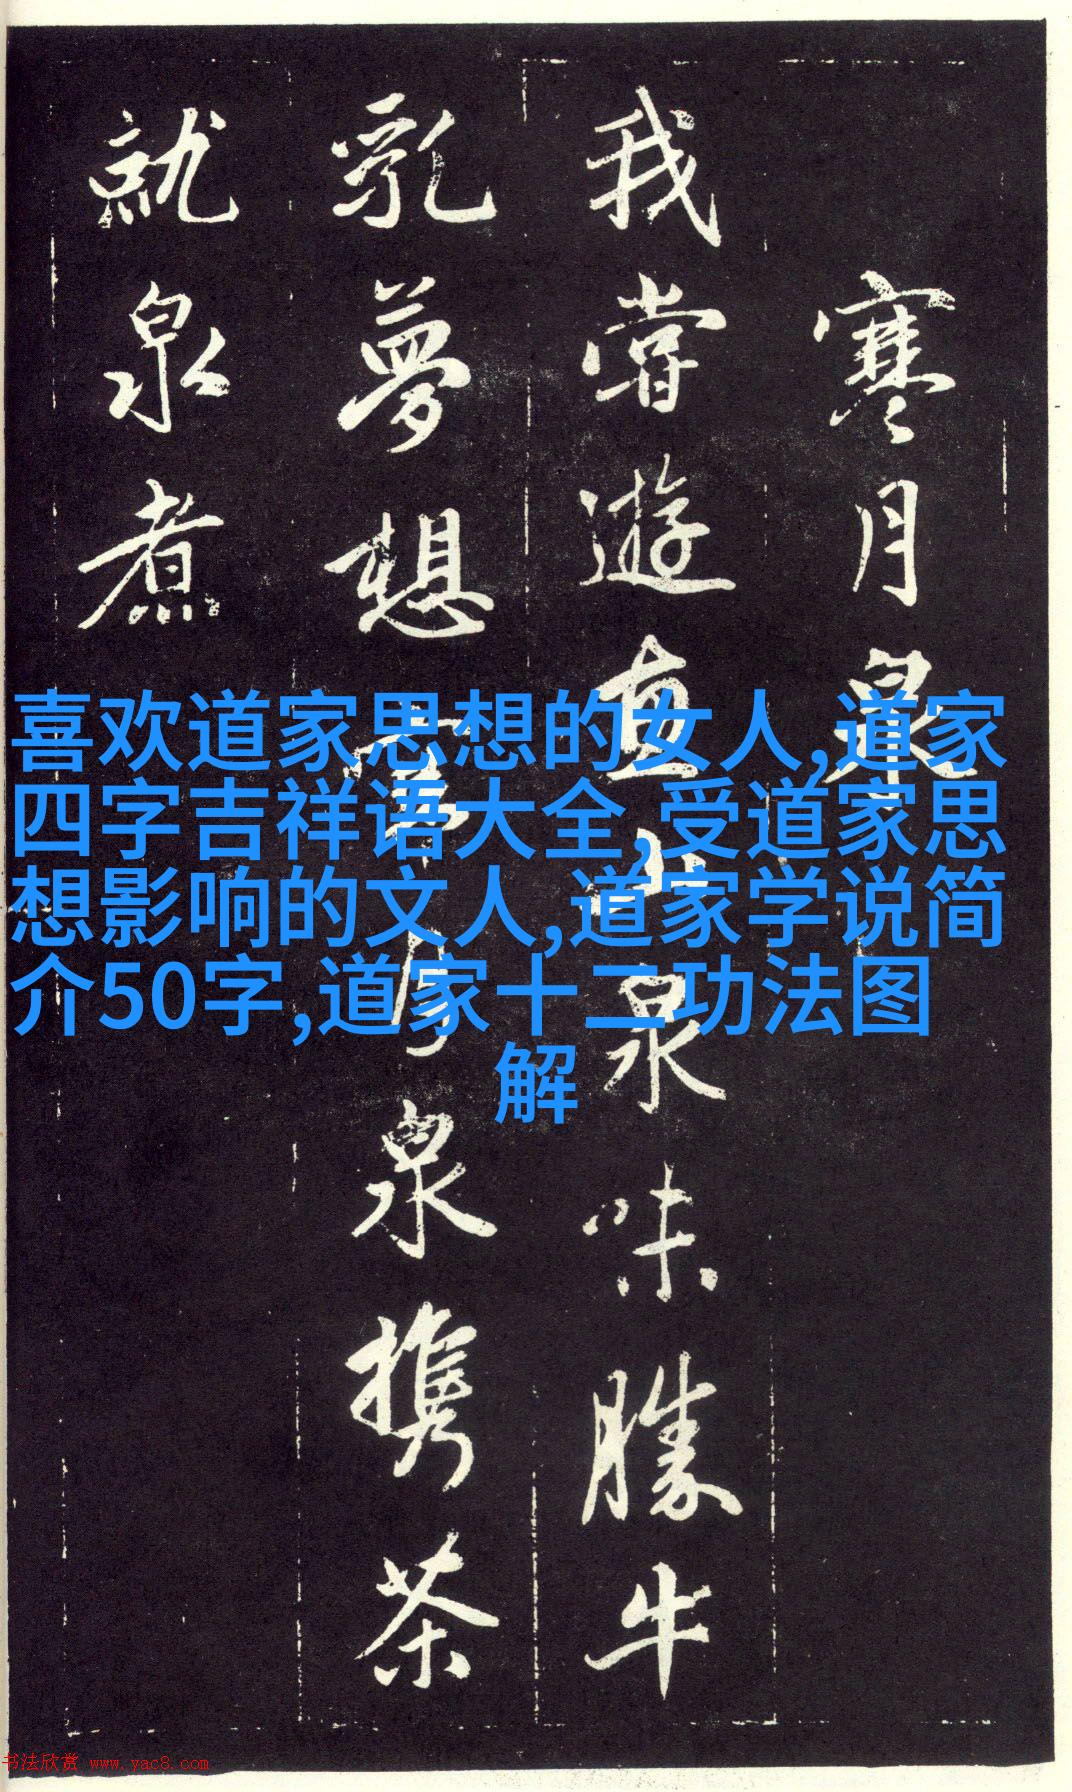 寒月泉
我嘗遊惠山泉味勝牛
乳夢想寒月泉攜茶
就泉煮
喜欢道家思想的女人,道家
四字吉祥语大全,受道家思
想影响的文人,道家学说简
介50字,道家十二功法图
解
书法欣赏 www.yac8.com